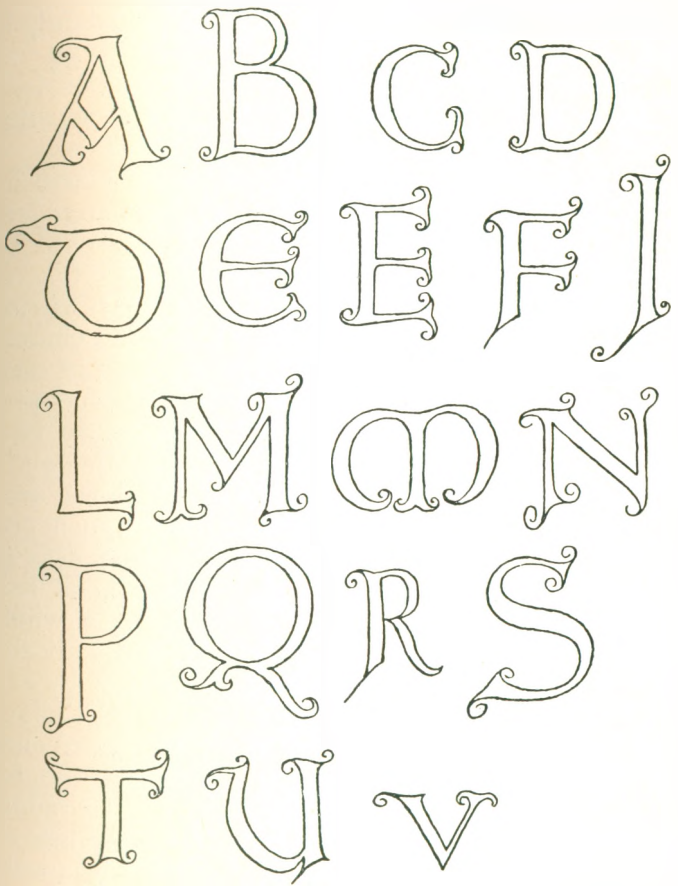 A B C D
D E E F J
L M M N
P Q R S
T U V